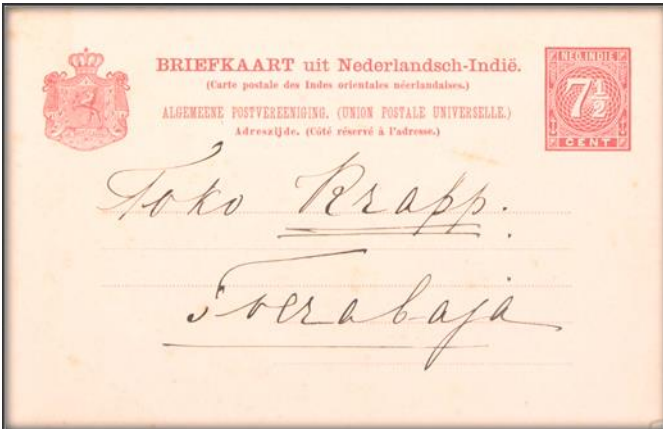 BRIEFKAART uit Nederlandsch-Indië.
(Carte postale des Indes orientales néerlandaises.)
ALGEMEENE POSTVEREENIGING. (UNION POSTALE UNIVERSELLE.)
Adreszijde. (Côté réservé à l'adresse.)
NED. INDIE
7½
CENT
Toko Krapp.
Soerabaja